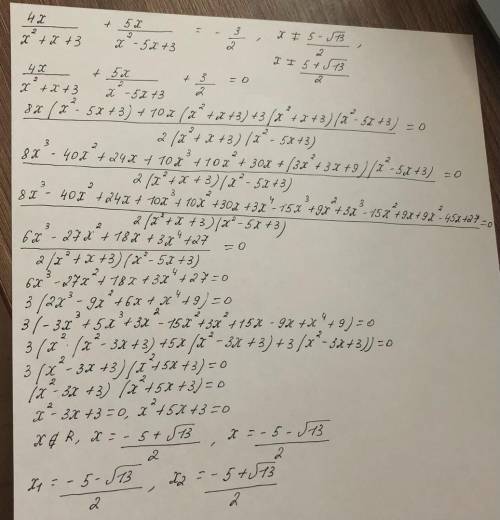 4x/(x²+x+3) + 5x/(x²-5x+3) = -3/2, x ≠ (5-√13)/2,
x ≠ (5+√13)/2
4x/(x²+x+3) + 5x/(x²-5x+3) + 3/2 = 0
(8x(x²-5x+3)+10x(x²+x+3)+3(x²+x+3)(x²-5x+3))/(2(x²+x+3)(x²-5x+3)) = 0
(8x³-40x²+24x+10x³+10x²+30x+(3x²+3x+9)(x²-5x+3))/(2(x²+x+3)(x²-5x+3)) = 0
(8x³-40x²+24x+10x³+10x²+30x+3x⁴-15x³+9x²+3x³-15x²+9x+9x²-45x+27)/(2(x²+x+3)(x²-5x+3)) = 0
(6x³-27x²+18x+3x⁴+27)/(2(x²+x+3)(x²-5x+3)) = 0
6x³-27x²+18x+3x⁴+27=0
3(2x³-9x²+6x+x⁴+9)=0
3(-3x³+5x³+3x²-15x²+3x²+15x-9x+x⁴+9)=0
3(x²·(x²-3x+3)+5x(x²-3x+3)+3(x²-3x+3))=0
3(x²-3x+3)(x²+5x+3)=0
(x²-3x+3)(x²+5x+3)=0
x²-3x+3=0, x²+5x+3=0
x∉R, x = (-5+√13)/2, x = (-5-√13)/2
x₁ = (-5-√13)/2, x₂ = (-5+√13)/2